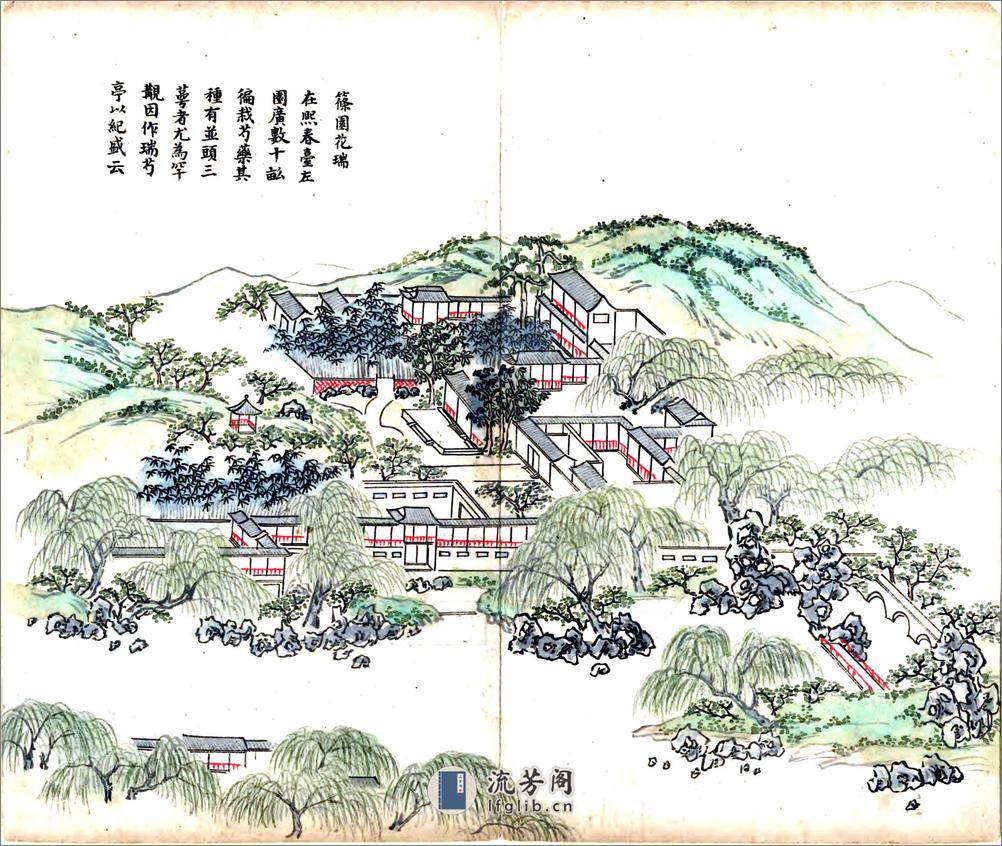 篠園花瑞
在熙春臺左
園廣數十畝
徧栽芍藥其
種有並頭三
萼者尤為罕
觀因作瑞芍
亭以紀盛云
流芳阁
lfglib.cn